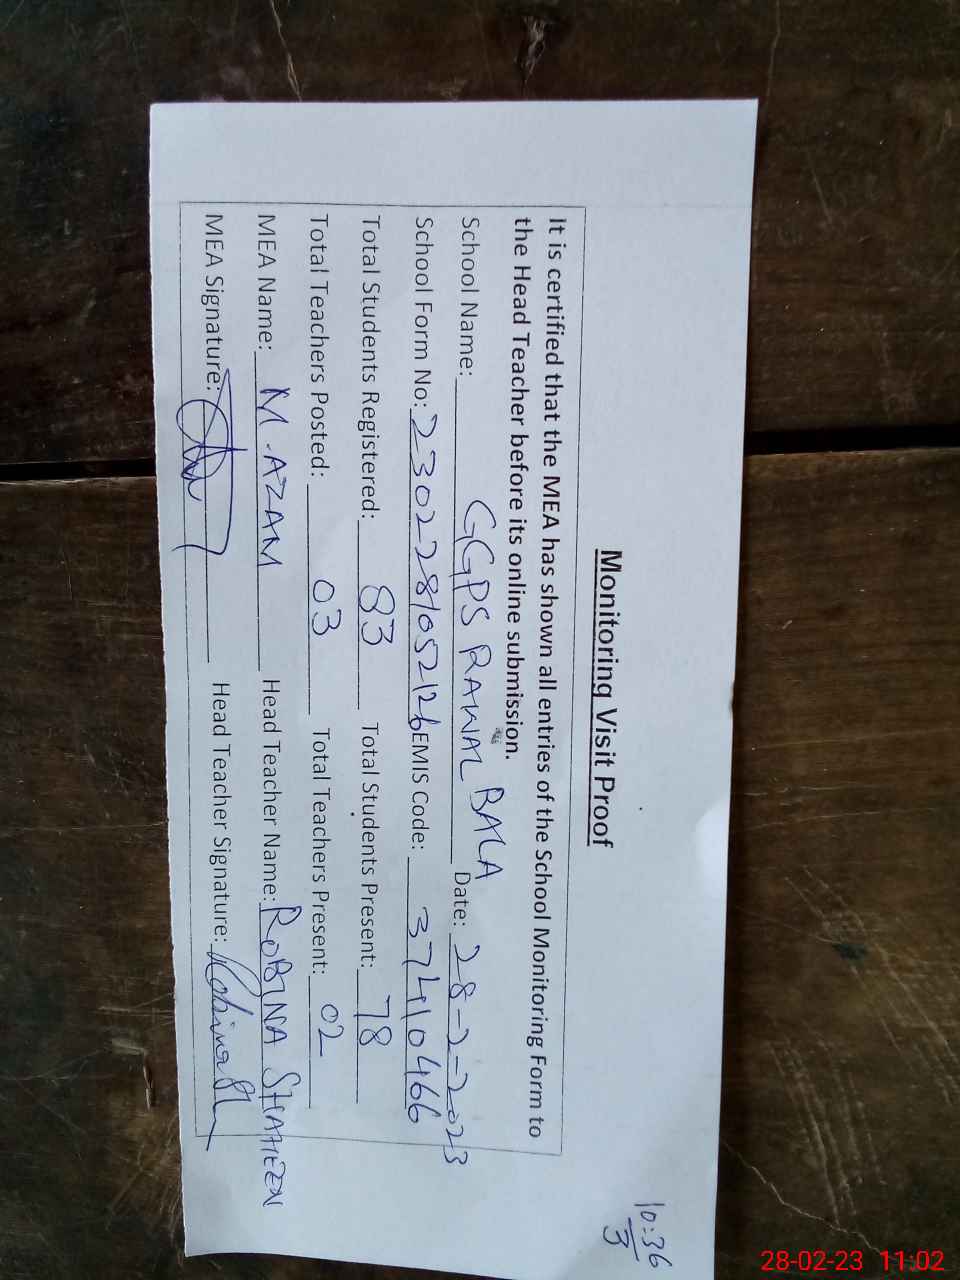 Monitoring Visit Proof
It is certified that the MEA has shown all entries of the School Monitoring Form to
the Head Teacher before its online submission.
School Name: GGPS RAWAL BALA Date: 28-2-2023
School Form No: 2302281052126 EMIS Code: 37410466
Total Students Registered: 83 Total Students Present: 78
Total Teachers Posted: 03 Total Teachers Present: 02
MEA Name: M.AZAM Head Teacher Name: ROBINA SHAHEEN
MEA Signature: Head Teacher Signature:
10:36
3
28-02-23 11:02